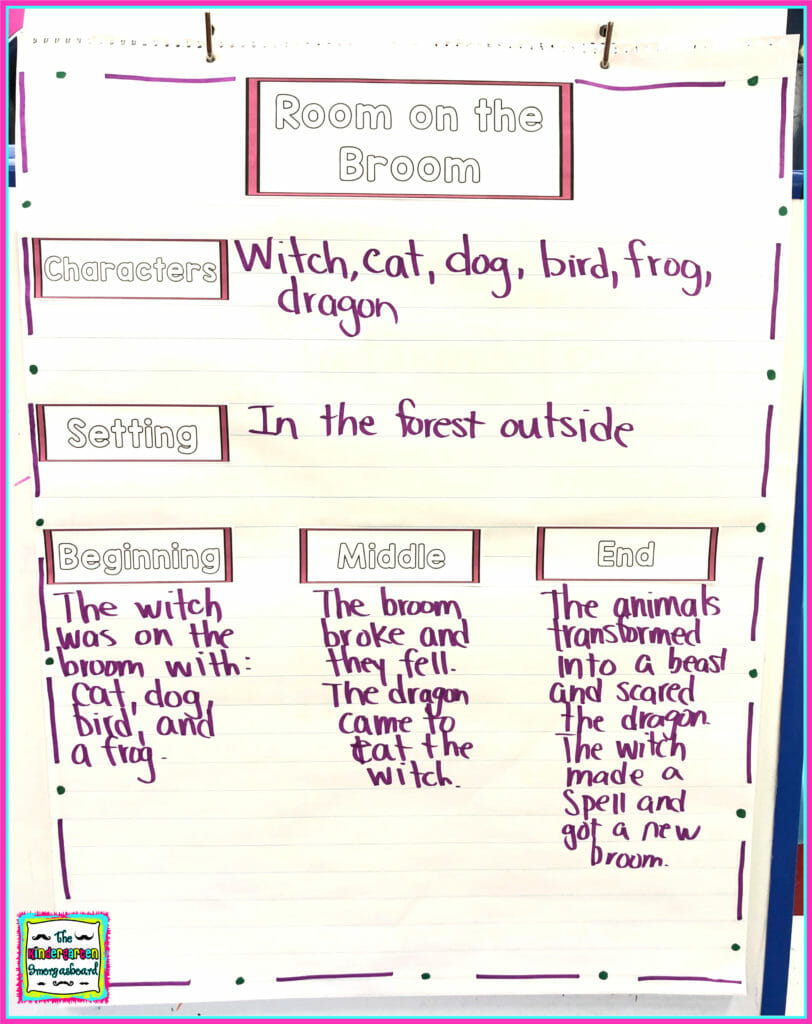 Room on the
Broom
Characters
Witch, cat, dog, bird, frog,
dragon
Setting
In the forest outside
Beginning
The witch
was on the
broom with:
cat, dog,
bird, and
a frog.
Middle
The broom
broke and
they fell.
The dragon
came to
eat the
witch.
End
The animals
transformed
into a beast
and scared
the dragon.
The witch
made a
Spell and
got a new
broom.
The
Kindergarten
Smorgasboard